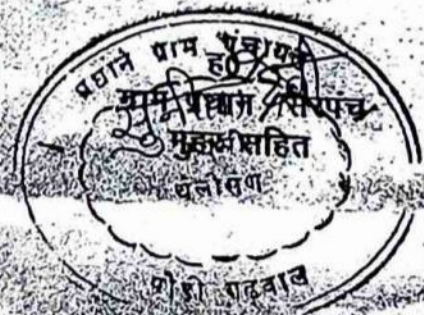 प्रधान ग्राम पंचायत
ह०
ग्राम प्रधान /सरपंच
मुहर सहित
थलीसैण
पौड़ी गढ़वाल